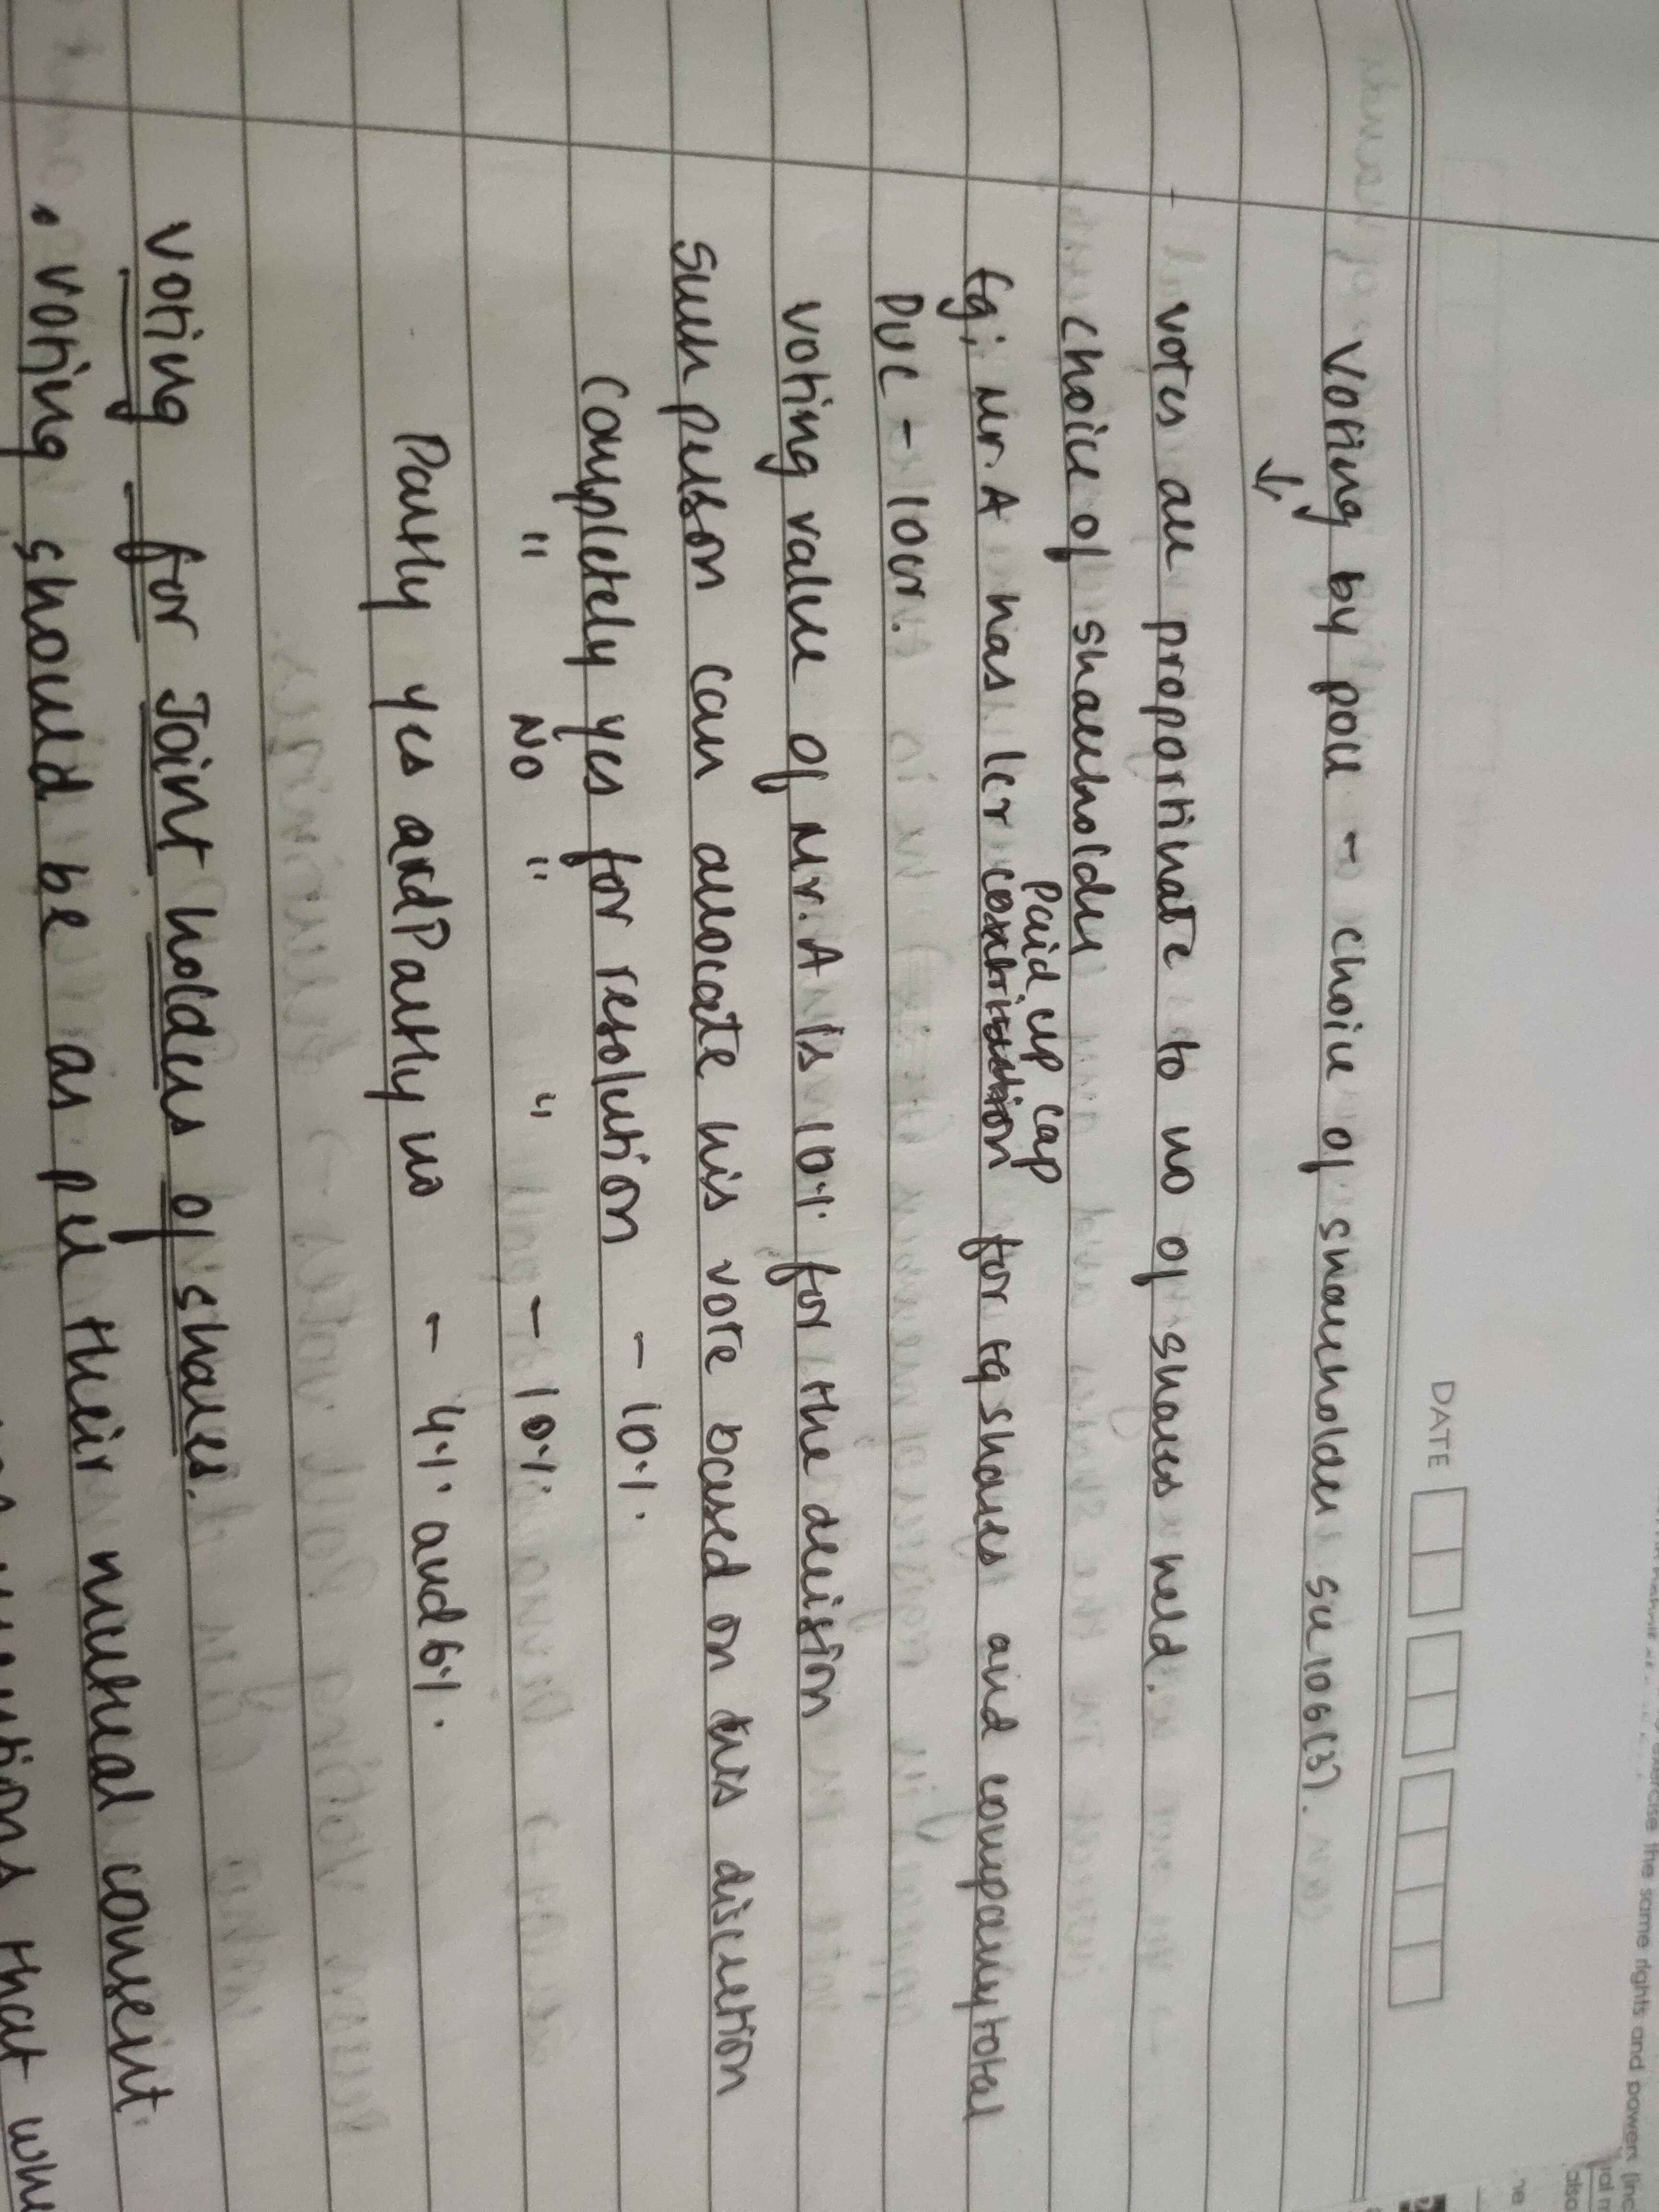 DATE
Voting by poll - choice of shareholder sec 106(3).
↓
- votes are proportinate to no of shares held.
choice of shareholder
Paid up cap
Eg; Mr. A has 1cr contribution for Eq shares and company total
PUC - 10cr.
voting value of Mr. A is 10% for the decision
Such person can allocate his vote based on his discretion
Completely yes for resolution - 10%.
" No " " - 10%.
Partly yes and Partly no - 4% and 6%.
Voting for Joint holders of shares.
• voting should be as per their mutual consent
that
the same rights and powers